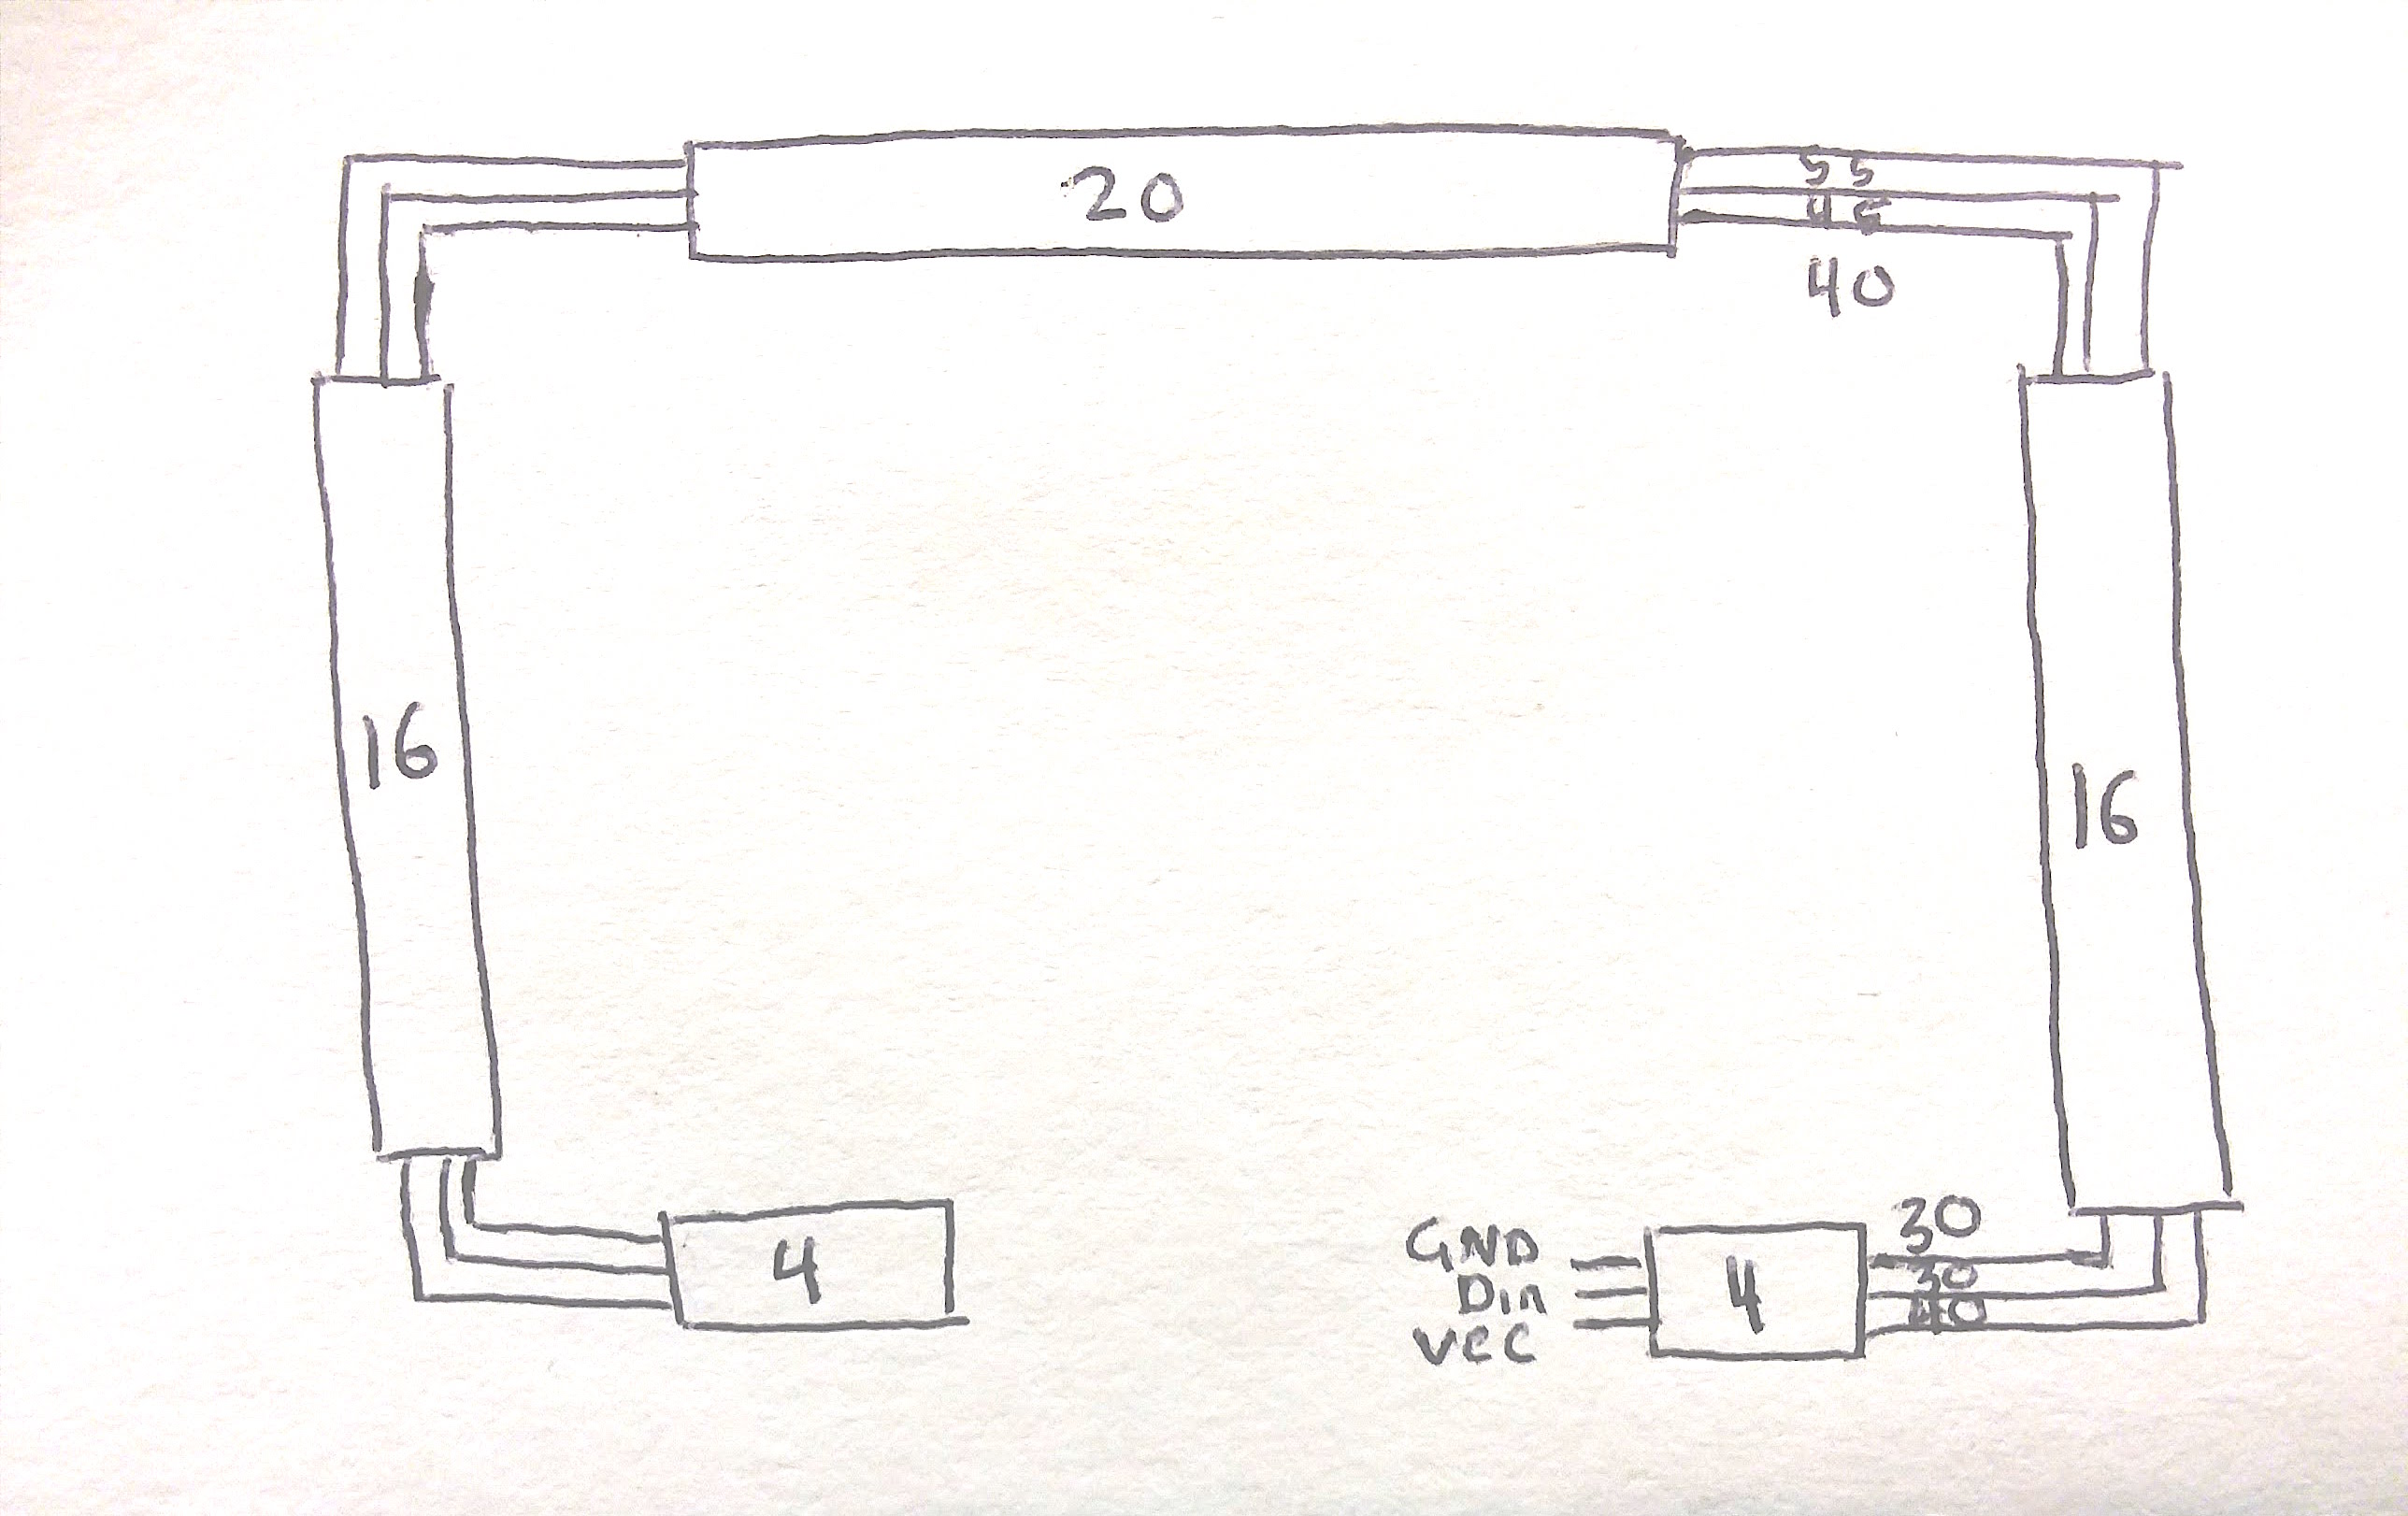 20
55
46
40
16
16
4
GND
Din
VCC
4
30
30
40